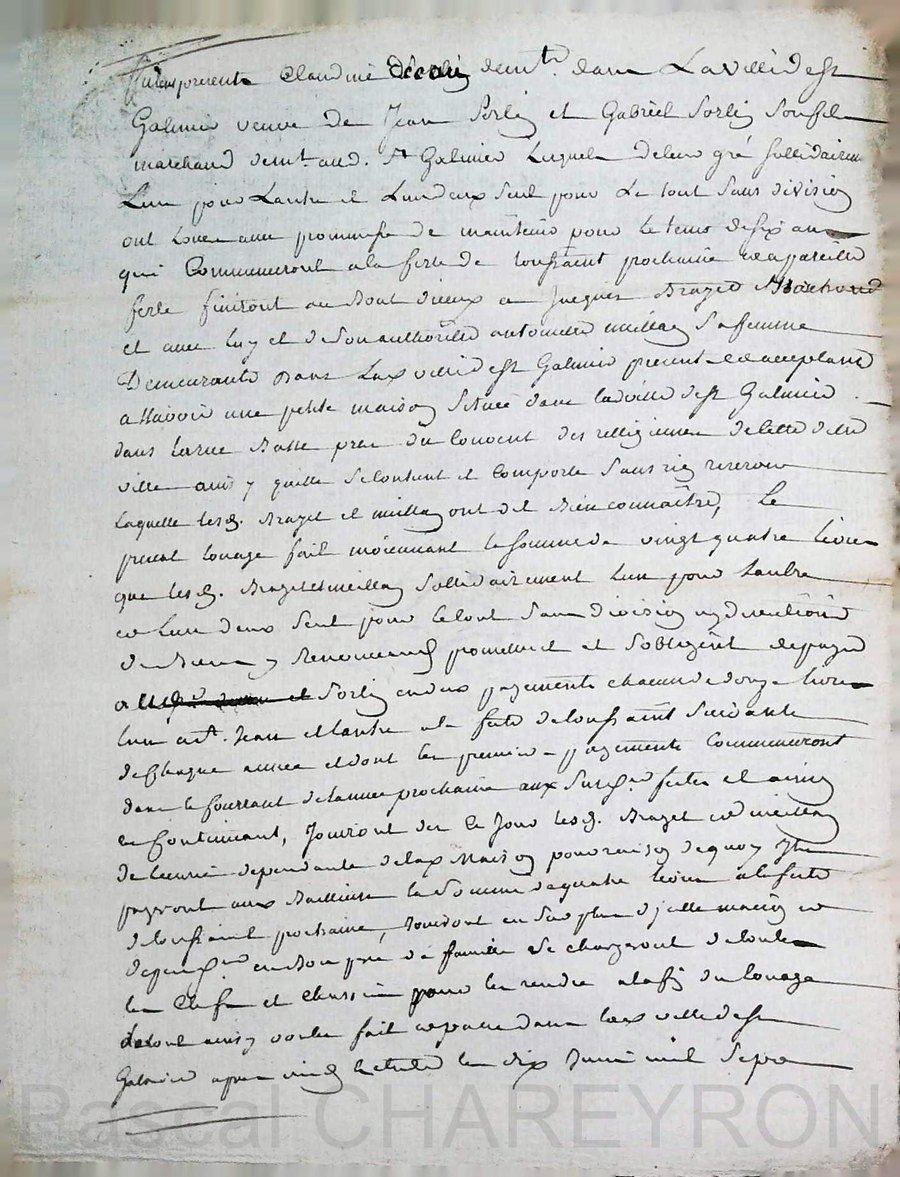 furent presents Claudine demte. dans La ville de st
Galmier veuve de Jean Sorlin et Gabriel Sorlin Son fils
marchand demt. aud. st Galmier Lesquels de leur gré sollidairemt
L'un pour L'autre et L'un deux seul pour Le tout sans division
ont Loué avec promesse de maintenir pour le tems de six ans
qui Commenceront a la feste de toussaint prochaine et a pareille
feste finiront au Bout diceux a Jacques Brazet Marchand
et avec Luy et de son authorité antoinette meillan Sa femme
Demeurants Dans Lad. ville de st Galmier present et acceptants
assavoir une petite maison Située dans lad. ville de st Galmier
dans la rue Basse pres du Couvent des relligieuses de cette ditte
ville ainsy quelle se contient et Comporte Sans rien reserver
Laquelle lesd. Brazet et meillan ont dit Bien connaître, Le
present louage fait moiennant la somme de vingt quatre livres
que lesd. Brazet et meillan sollidairement L'un pour L'autre
et L'un deux seul pour le tout sans division ny discution
de Biens y Renonceant promettent et s'obligent de payer
a Sorlin en deux payements chacun de douze livres
l'un a st. Jean et l'autre a la feste de toussaint suivante
de Chaque année et dont les premiers payements Commenceront
dans le Courrant de l'année prochaine aux susd. festes et ainsy
en Continuant, Jouiront des ce Jour lesd. Brazet et meillan
de l'ecurie dependante de lad. Maison pour raison de quoy Ils
payeront aux Bailleurs la Somme de quatre livres a la feste
de toussaint prochaine, Jouiront en surplus d'icelle maison et
dependces en Bon pere de famille se chargeront de toutes
les Clefs et pour les rendre a la fin du louage
le tout ainsy voulu fait et passé dans lad. ville de st
Galmier apres midy le dix Juin mil sept
Pascal CHAREYRON